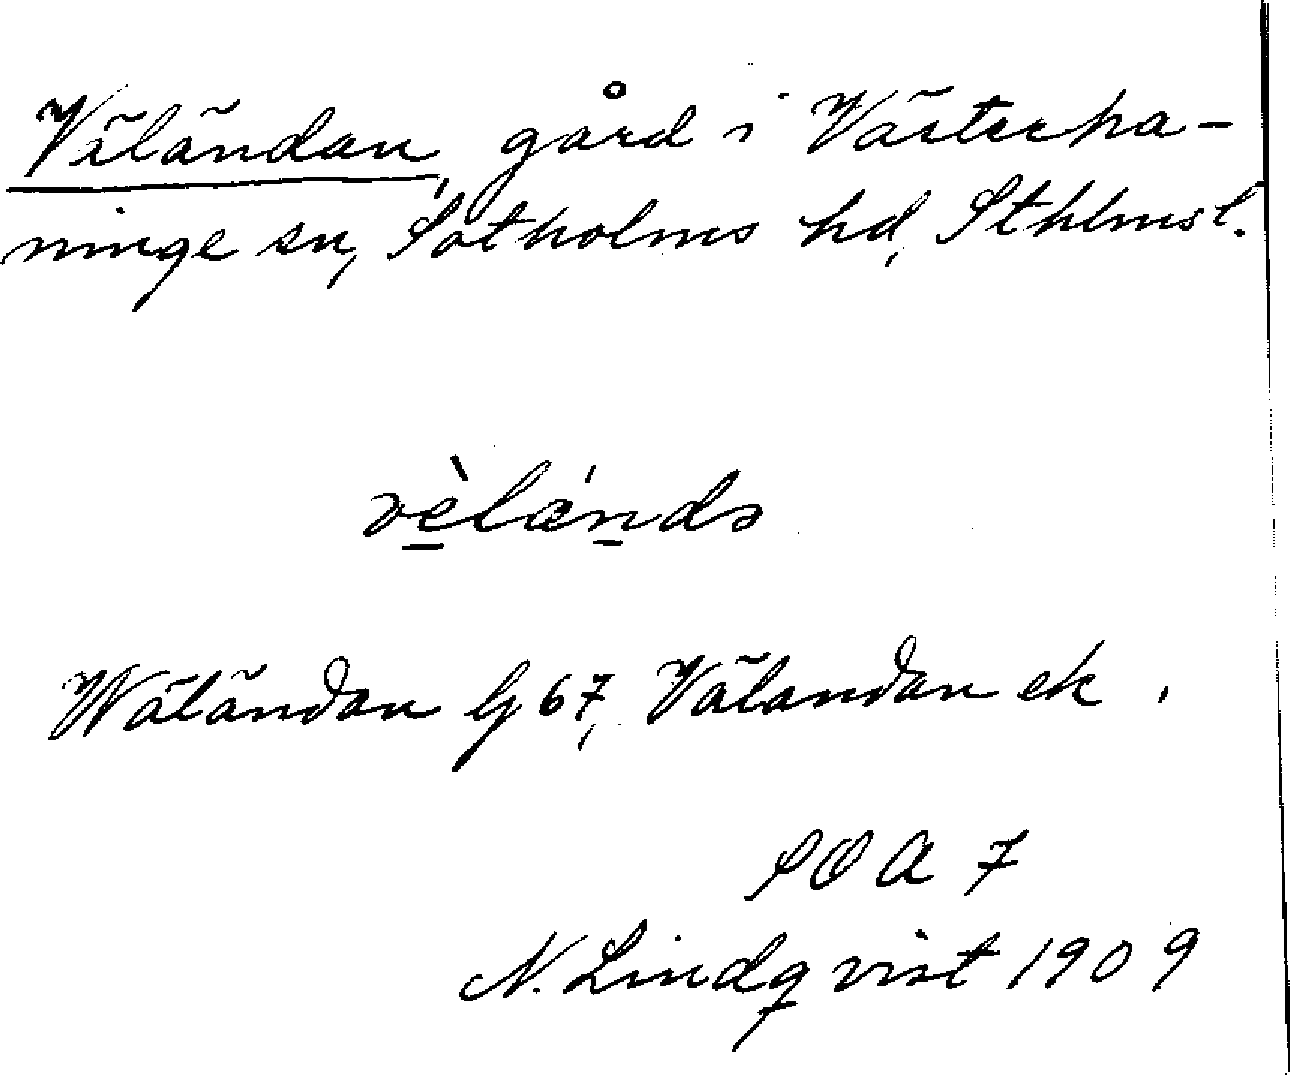 Väländan, gård i Västerha-
ninge sn, Sotholms hd, Sthlmsl.
vèlǽndə
Wäländan G 67, Välandan ek.
SOA 7
N. Lindqvist 1909